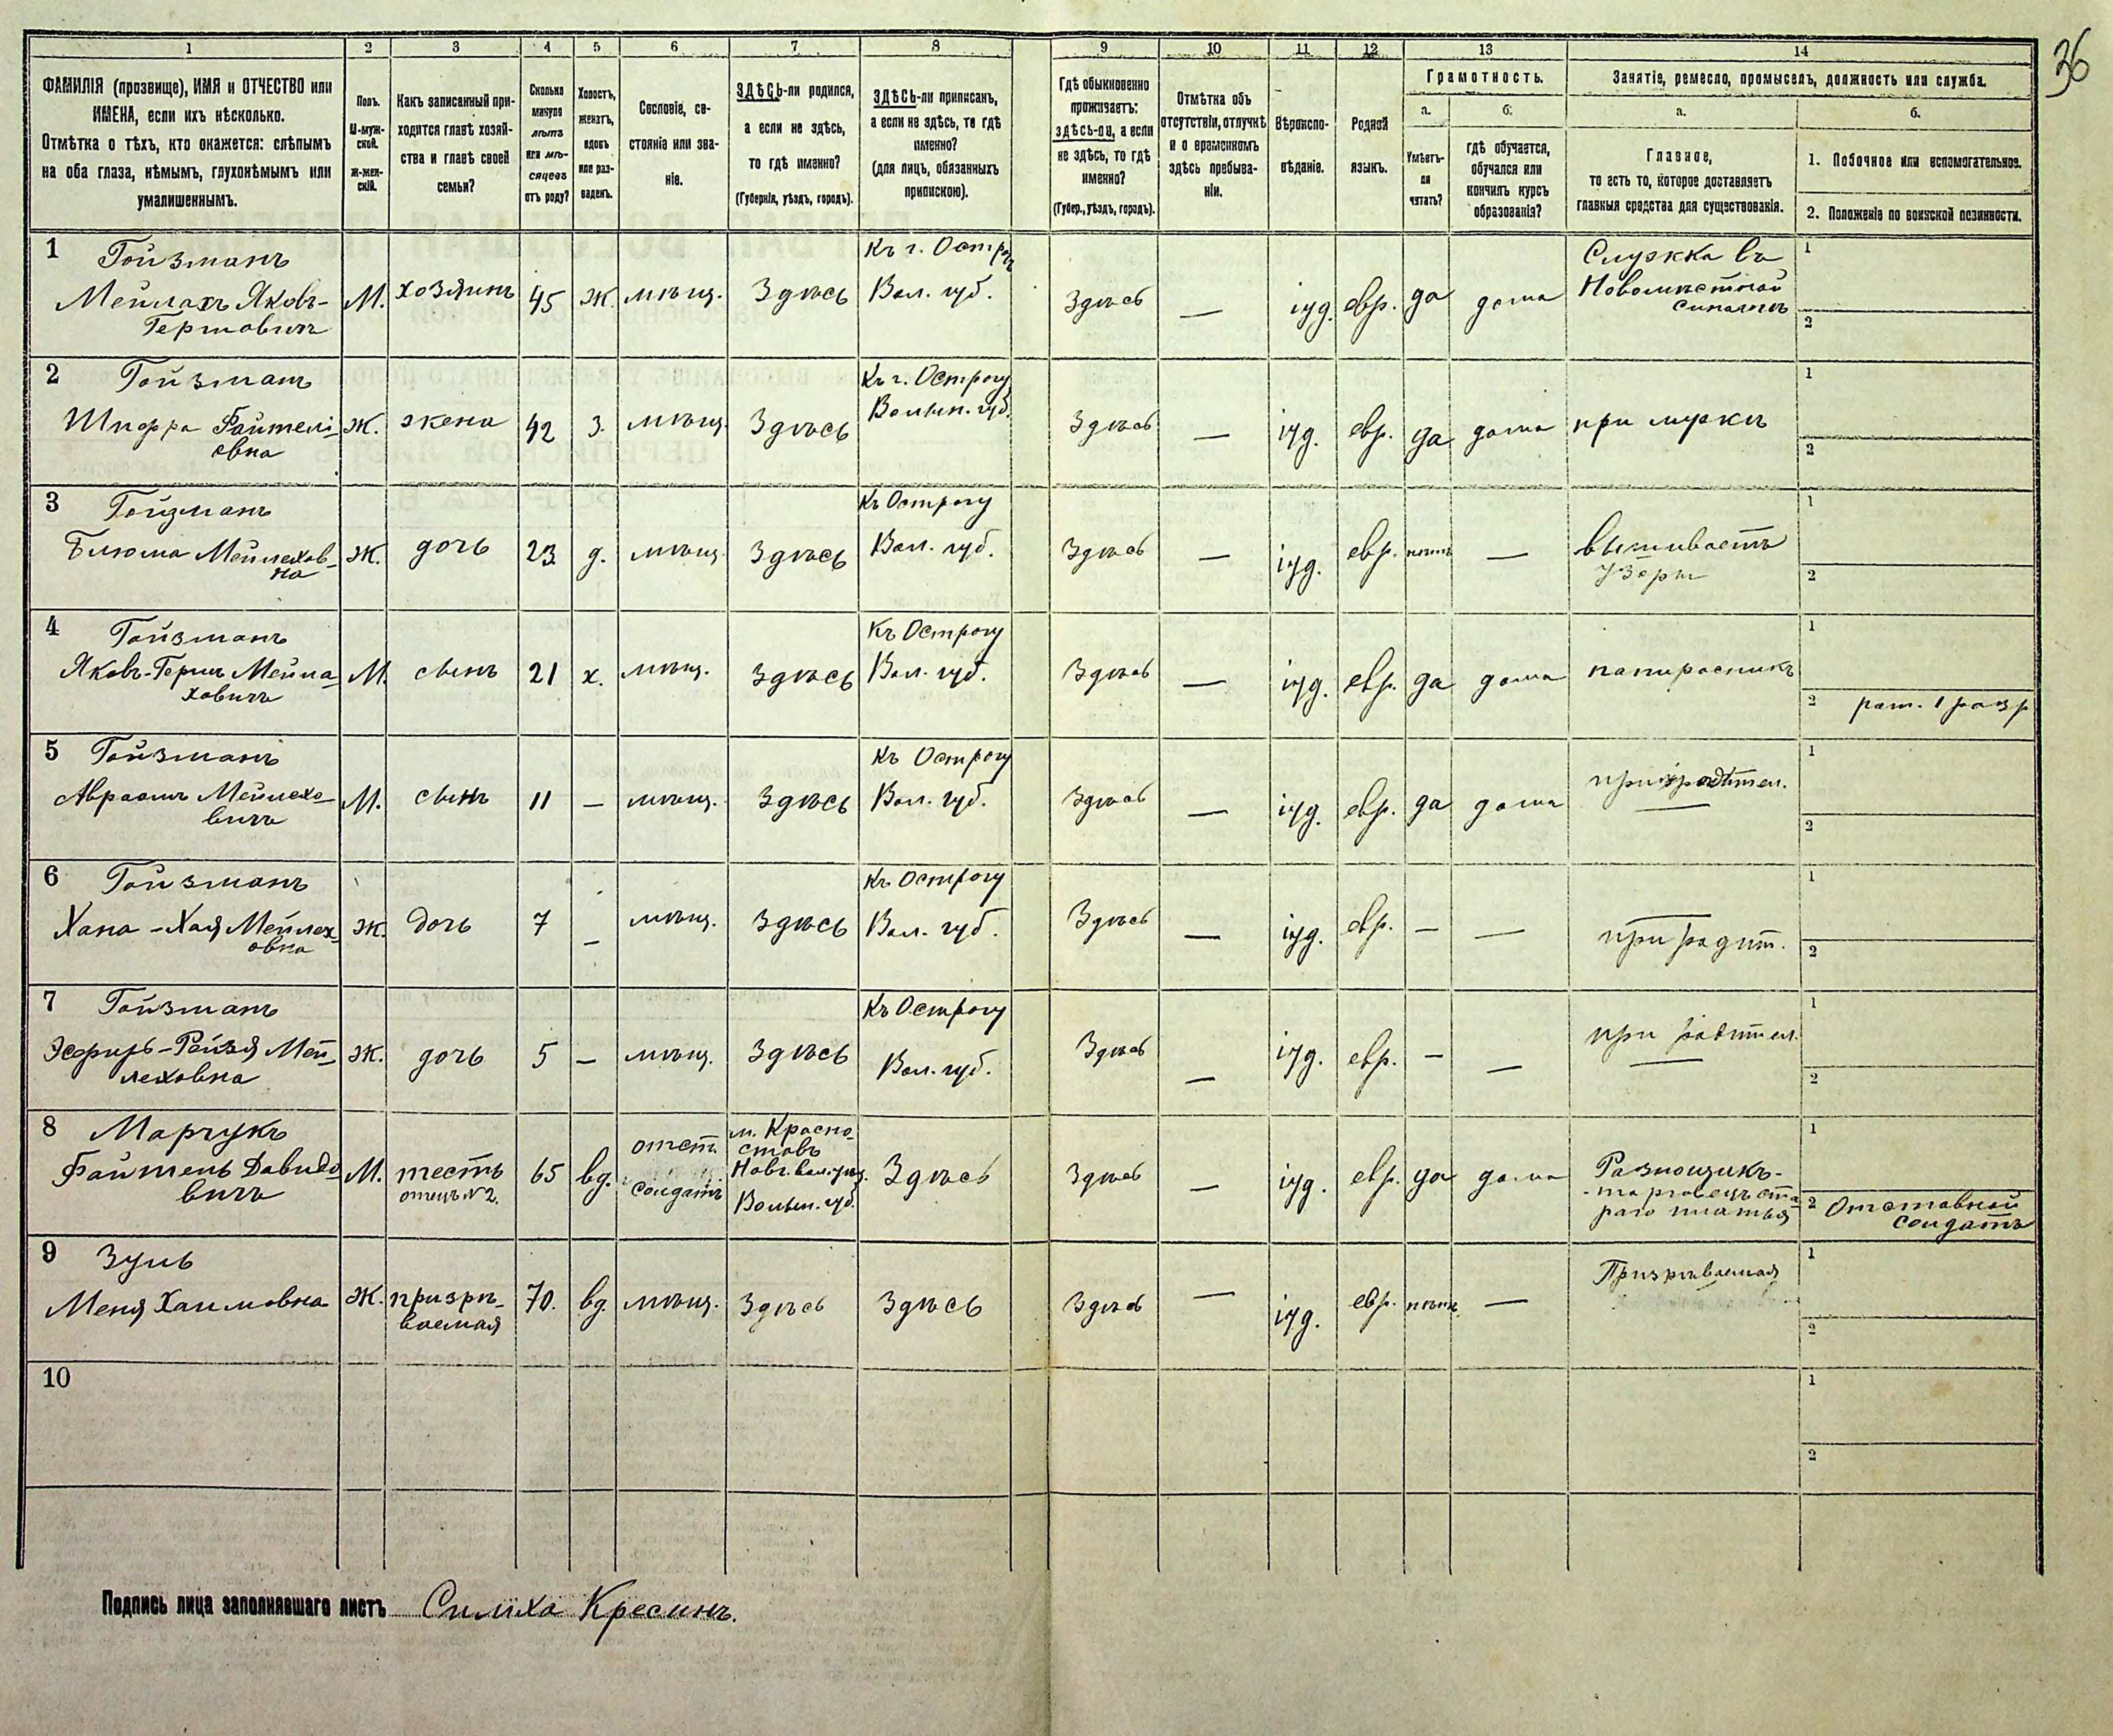 36
1 2 3 4 5 6 7 8 9 10 11 12 13 14
ФАМИЛІЯ (прозвище), ИМЯ и ОТЧЕСТВО или
ИМЕНА, если ихъ нѣсколько.
Отмѣтка о тѣхъ, кто окажется: слѣпымъ
на оба глаза, нѣмымъ, глухонѣмымъ или
умалишеннымъ.
Полъ.
М-муж-
ской.
Ж-жен-
скій.
Какъ записанный при-
ходится главѣ хозяй-
ства и главѣ своей
семьи?
Сколько
минуло
лѣтъ
или мѣ-
сяцевъ
отъ роду?
Холостъ,
женатъ,
вдовъ
или раз-
веденъ.
Сословіе, со-
стояніе или зва-
ніе.
ЗДѢСЬ-ли родился,
а если не здѣсь,
то гдѣ именно?
(Губернія, уѣздъ, городъ).
ЗДѢСЬ-ли приписанъ,
а если не здѣсь, то гдѣ
именно?
(для лицъ, обязанныхъ
припискою).
Гдѣ обыкновенно
проживаетъ:
здѣсь-ли, а если
не здѣсь, то гдѣ
именно?
(Губер., уѣздъ, городъ).
Отмѣтка объ
отсутствіи, отлучкѣ
и о временномъ
здѣсь пребыва-
ніи.
Вѣроиспо-
вѣданіе.
Родной
языкъ.
Грамотность.
а.
Умѣетъ-
ли
читать?
б.
гдѣ обучается,
обучался или
кончилъ курсъ
образованія?
Занятіе, ремесло, промыселъ, должность или служба.
а.
Главное,
то есть то, которое доставляетъ
главныя средства для существованія.
б.
1. Побочное или вспомогательное.
2. Положеніе по воинской повинности.
1 Гойзманъ
Мейлахъ Яковъ-
Гершовичъ
М. хозяинъ 45 ж. мѣщ. Здѣсь
Къ г. Острогу
Вол. губ.
Здѣсь — іуд. евр. да дома
Служка въ
Новомѣстной
синагогѣ
1
2
2 Гойзманъ
Шифра Файтелі-
евна
Ж. жена 42 з. мѣщ. Здѣсь
Къ г. Острогу
Волын. губ.
Здѣсь — іуд. евр. да дома при мужѣ
1
2
3 Гойзманъ
Блюма Мейлехов-
на
Ж. дочь 23 д. мѣщ. Здѣсь
Къ Острогу
Вол. губ.
Здѣсь — іуд. евр. нѣтъ —
вышиваетъ
узоры
1
2
4 Гойзманъ
Яковъ-Герш Мейла-
ховичъ
М. сынъ 21 х. мѣщ. Здѣсь
Къ Острогу
Вол. губ.
Здѣсь — іуд. евр. да дома папиросникъ
1
2 рат. 1 разр
5 Гойзманъ
Авраамъ Мейлехо-
вичъ
М. сынъ 11 — мѣщ. Здѣсь
Къ Острогу
Вол. губ.
Здѣсь — іуд. евр. да дома при родител.
1
2
6 Гойзманъ
Хана-Хая Мейлех-
овна
Ж. дочь 7 — мѣщ. Здѣсь
Къ Острогу
Вол. губ.
Здѣсь — іуд. евр. — — при родит.
1
2
7 Гойзманъ
Эсфирь-Рейзя Мей-
леховна
Ж. дочь 5 — мѣщ. Здѣсь
Къ Острогу
Вол. губ.
Здѣсь — іуд. евр. — — при родител.
1
2
8 Марчукъ
Файтель Давидо-
вичъ
М. тесть
отецъ №2.
65 вд.
отст.
солдатъ
м. Красно-
ставъ
Новг. вол. уѣз.
Волын. губ.
Здѣсь
Здѣсь — іуд. евр. да дома
Разнощикъ-
-торговецъ ста-
раго платья
1
2 Отставной
солдатъ
9 Зуль
Меня Хаимовна
Ж. призрѣ-
ваемая
70. вд. мѣщ. Здѣсь Здѣсь
Здѣсь — іуд. евр. нѣтъ — Призрѣваемая
1
2
10
1
2
Подпись лица заполнявшаго листъ Симха Кресинъ.